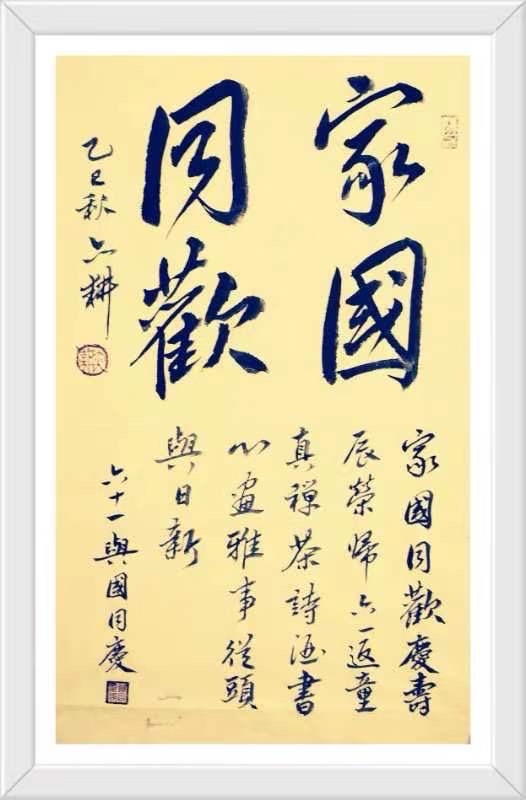 家國
同歡
乙巳秋六耕
家國同歡慶壽
辰榮歸六一返童
真禪茶詩酒書
心畫雅事從頭
與日新
六十一與國同慶